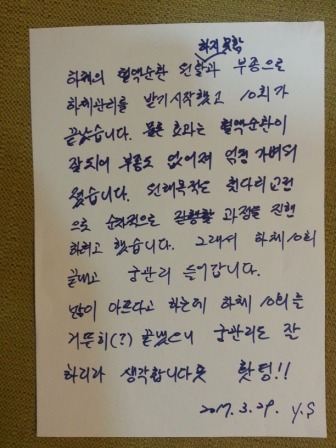 하지 못함
하체의 혈액순환 원활과 부종으로
하체관리를 받기 시작했고 10회가
끝났습니다. 물론 효과는 혈액순환이
잘되어 부종도 없어져 엄청 가벼워
졌습니다. 원래목적도 휜다리교련
으로 순차적으로 과정을 진행
하려고 했습니다. 그래서 하체 10회
끝내고 궁관리 들어갑니다.
많이 아프다고 하는데 하체 10회를
거뜬히(?) 끝냈으니 궁관리도 잘
하리라 생각합니다 홧팅!!
2017. 3. 29. Y.S